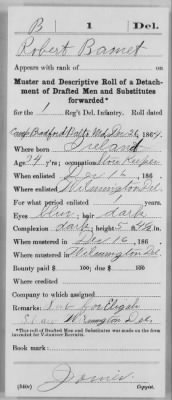 B | 1 | Del.
Robert Barnet
Appears with rank of
Muster and Descriptive Roll of a Detach-
ment of Drafted Men and Substitutes
forwarded*
for the 1 Reg't Del. Infantry. Roll dated
Camp Bradford Balto Md Dec 26, 1864.
Where born Ireland
Age 24 y'rs; occupation Store Keeper
When enlisted Dec 16, 186
Where enlisted Wilmington Del.
For what period enlisted 1 years.
Eyes blue; hair dark
Complexion dark; height 5 ft. in.
When mustered in Dec 16, 186
Where mustered in Wilmington Del.
Bounty paid $ 100; due $ 100
Where credited
Company to which assigned
Remarks: Sub for Elijah
Wilmington Del.
*This roll of Drafted Men and Substitutes was made on the form
intended for Volunteer Recruits.
Book mark:
Copyist.